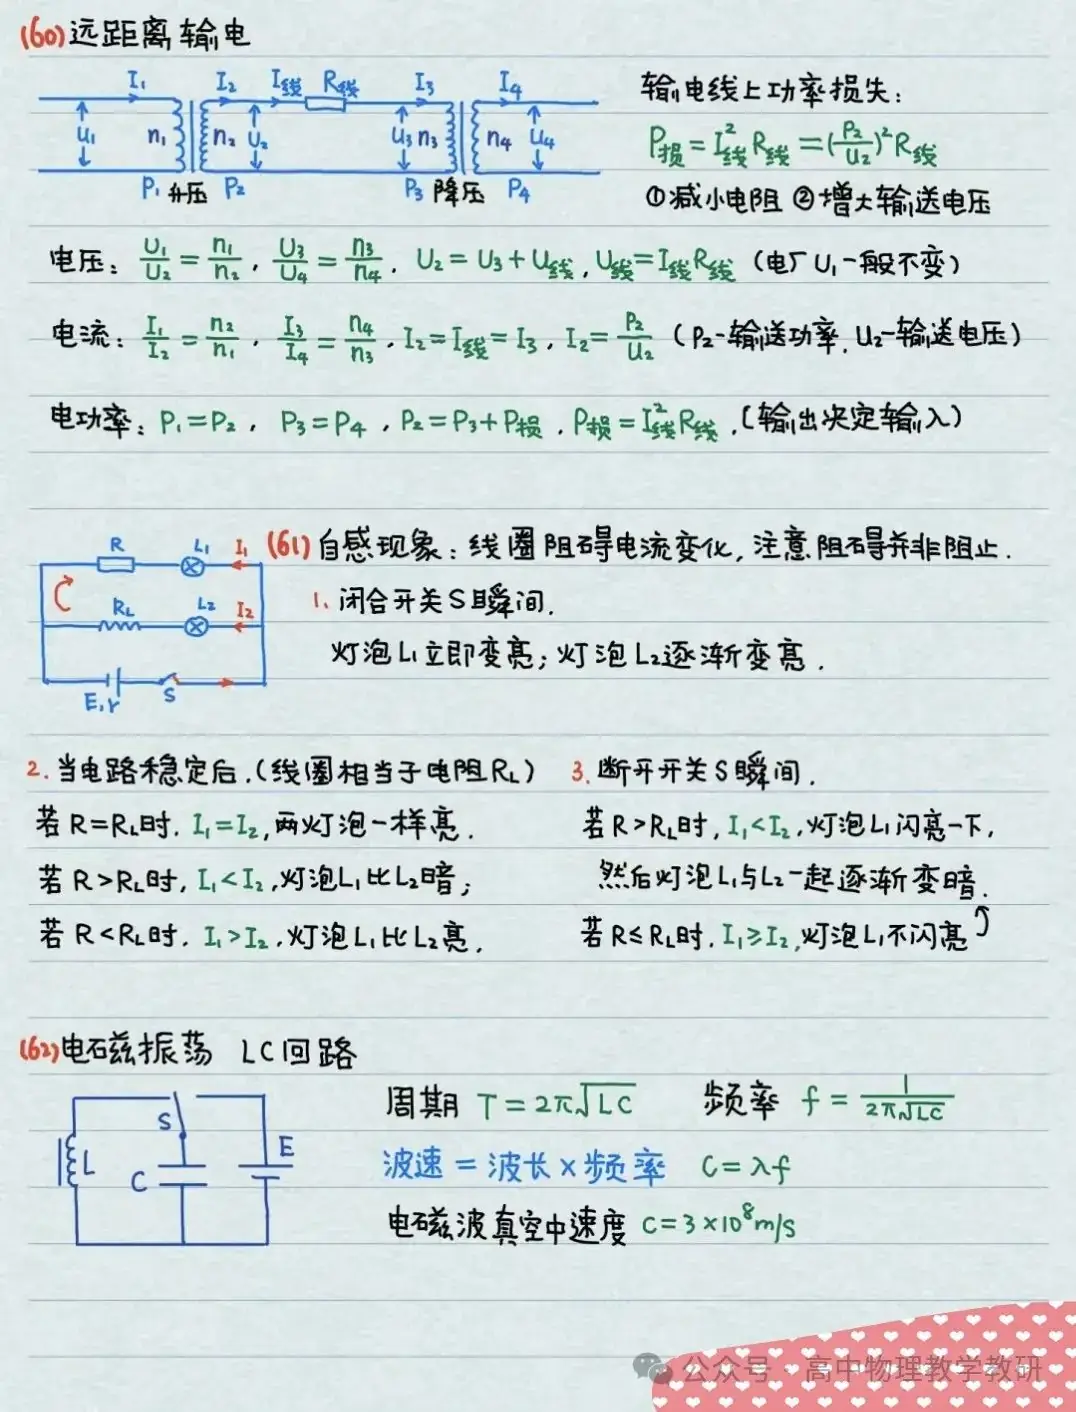 (60) 远距离输电
I₁ I₂ I线 R线 I₃ I₄
U₁ n₁ n₂ U₂ U₃ n₃ n₄ U₄
P₁ 升压 P₂ P₃ 降压 P₄
输电线上功率损失:
P损 = I线² R线 = (P₂/U₂)² R线
①减小电阻 ②增大输送电压
电压: U₁/U₂ = n₁/n₂, U₃/U₄ = n₃/n₄, U₂ = U₃ + U线, U线 = I线R线 (电厂U₁一般不变)
电流: I₁/I₂ = n₂/n₁, I₃/I₄ = n₄/n₃, I₂ = I线 = I₃, I₂ = P₂/U₂ (P₂-输送功率, U₂-输送电压)
电功率: P₁ = P₂, P₃ = P₄, P₂ = P₃ + P损, P损 = I线² R线, (输出决定输入)
R L₁ I₁
R_L L₂ I₂
E,r S
(61) 自感现象: 线圈阻碍电流变化, 注意阻碍并非阻止.
1. 闭合开关S瞬间.
灯泡L₁立即变亮; 灯泡L₂逐渐变亮.
2. 当电路稳定后. (线圈相当于电阻R_L)
若R=R_L时, I₁=I₂, 两灯泡一样亮.
若R>R_L时, I₁<I₂, 灯泡L₁比L₂暗;
若R<R_L时, I₁>I₂, 灯泡L₁比L₂亮.
3. 断开开关S瞬间.
若R>R_L时, I₁<I₂, 灯泡L₁闪亮一下,
然后灯泡L₁与L₂一起逐渐变暗.
若R≤R_L时, I₁≥I₂, 灯泡L₁不闪亮
(62) 电磁振荡 LC回路
L S C E
周期 T = 2π√LC 频率 f = 1/(2π√LC)
波速 = 波长 × 频率 C = λf
电磁波真空中速度 C = 3×10⁸m/s
公众号 · 高中物理教学教研